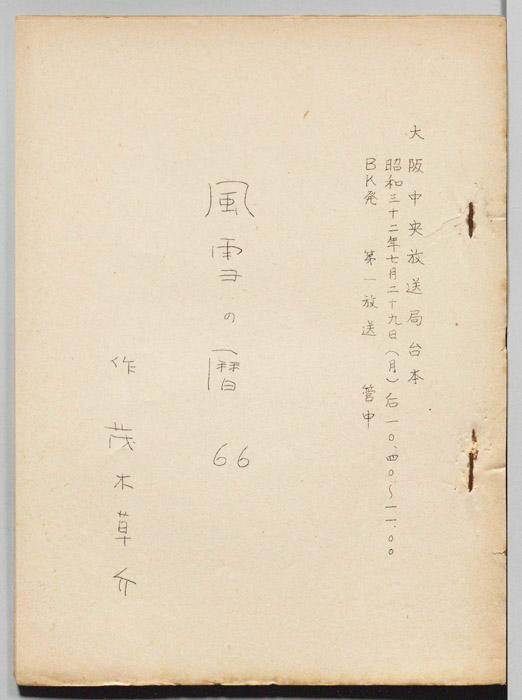 大阪中央放送局台本
昭和三十二年七月二十九日（月）后一〇.四〇～一一.〇〇
BK発　第一放送　管中
風雪の暦　66
作　茂木草介